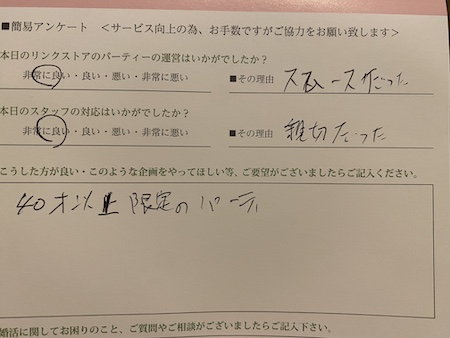 ■簡易アンケート <サービス向上の為、お手数ですがご協力をお願い致します>
本日のリンクストアのパーティーの運営はいかがでしたか?
非常に良い・良い・悪い・非常に悪い ■その理由 スムースだった
本日のスタッフの対応はいかがでしたか?
非常に良い・良い・悪い・非常に悪い ■その理由 親切だった
こうした方が良い・このような企画をやってほしい等、ご要望がございましたらご記入ください。
40才以上限定のパーティ
婚活に関してお困りのこと、ご質問やご相談がございましたらご記入下さい。